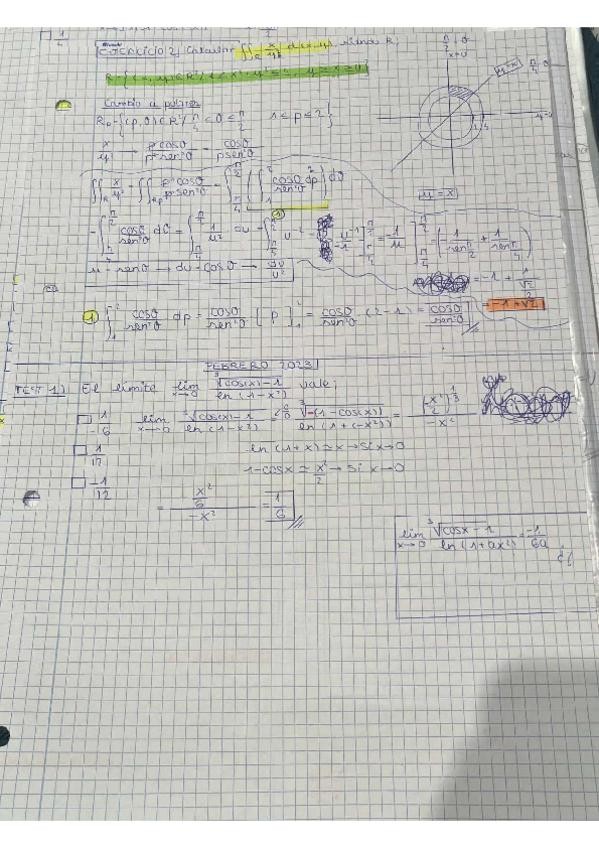 1/4
EJERCICIO 2) Calcular ∬_R x/y² d(x,y), siendo R;
R={(x,y)∈R²/1<x²+y²≤4, y≥x≥0}
Cambio a polares
R_p={(ρ,θ)∈R²/ π/4 ≤θ≤ π/2 1≤ρ≤2}
x/y² → ρcosθ/ρ²sen²θ = cosθ/ρsen²θ
∬_R x/y² = ∬_Rp ρ²cosθ/ρ²sen²θ = ∫_{π/4}^{π/2} (∫_1^2 cosθ/sen²θ dρ) dθ
y=x
= ∫_{π/4}^{π/2} cosθ/sen²θ dθ = ∫_{π/4}^{π/2} 1/u² du = ∫_{π/4}^{π/2} u⁻² = u⁻¹/-1 ]_{π/4}^{π/2} = -1/u ]_{π/4}^{π/2} = (-1/sen π/2 + 1/sen π/4)
u=senθ → du=cosθ → du/u²
= -1 + 1/(√2/2)
= -1+√2
1 ∫_1^2 cosθ/sen²θ dρ = cosθ/sen²θ [ρ]_1^2 = cosθ/sen²θ (2-1) = cosθ/sen²θ
FEBRERO 2023
TEST 1) El límite lim x→0 ∛cos(x)-1/ln(1-x²) vale;
1/6 lim x→0 ∛cos(x)-1/ln(1-x²) 0/0 ∛-(1-cos(x))/ln(1+(-x²)) = (-x²/2)^1/3/-x²
1/12 ln(1+x)≈x→si x→0
-1/12 1-cosx≈x²/2→si x→0
= x²/6/-x² = 1/6
lim x→0 ∛cosx-1/ln(1+ax²) = -1/6a